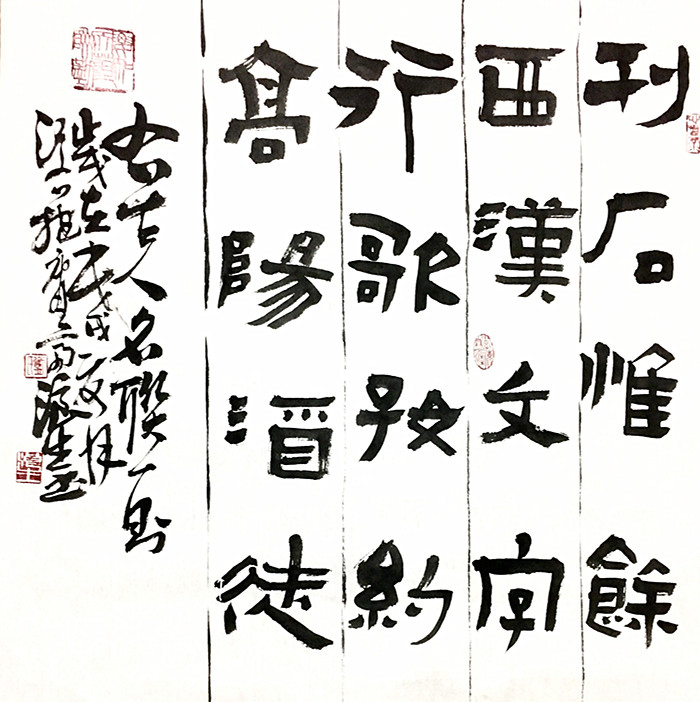 刊石惟餘
西漢文字
行歌好約
高陽酒徒
右古人名聯一則
歲在戊戌夏